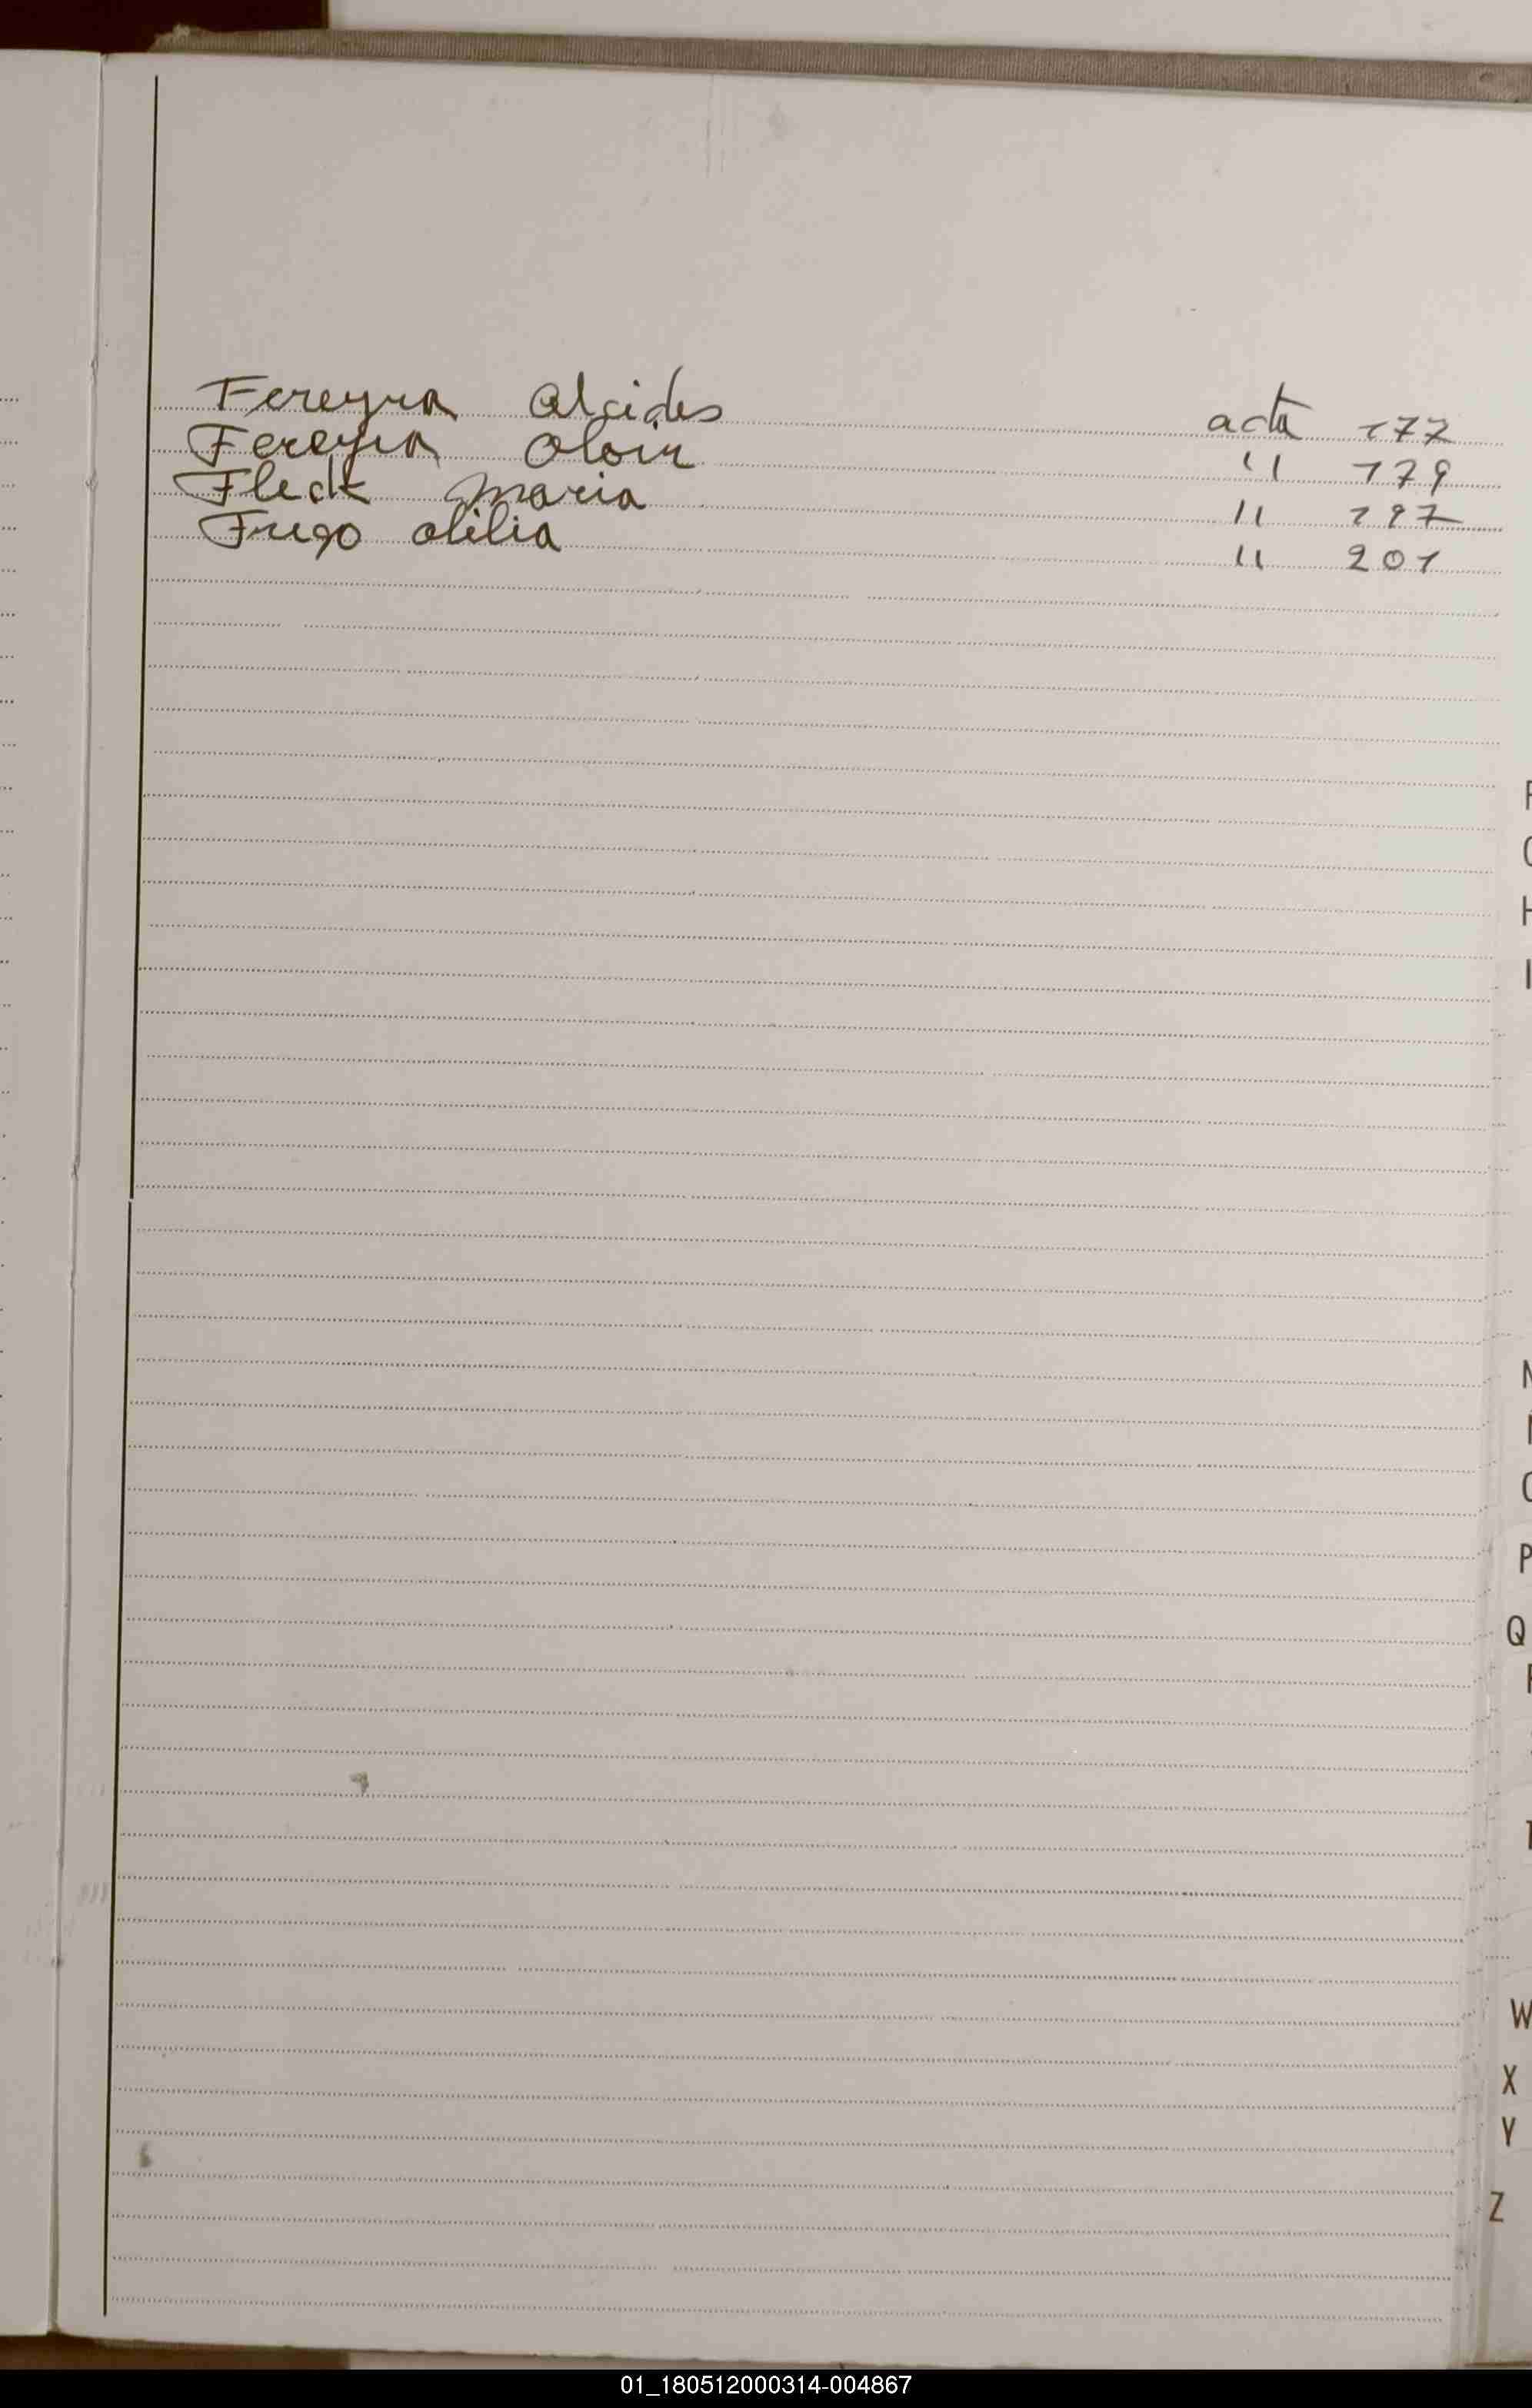 Fereyra Alcides acta 177
Fereyra Aloir " 179
Fleck Maria " 197
Frigo Otilia " 201
H
I
P
Q
W
X
Y
Z
01_180512000314-004867